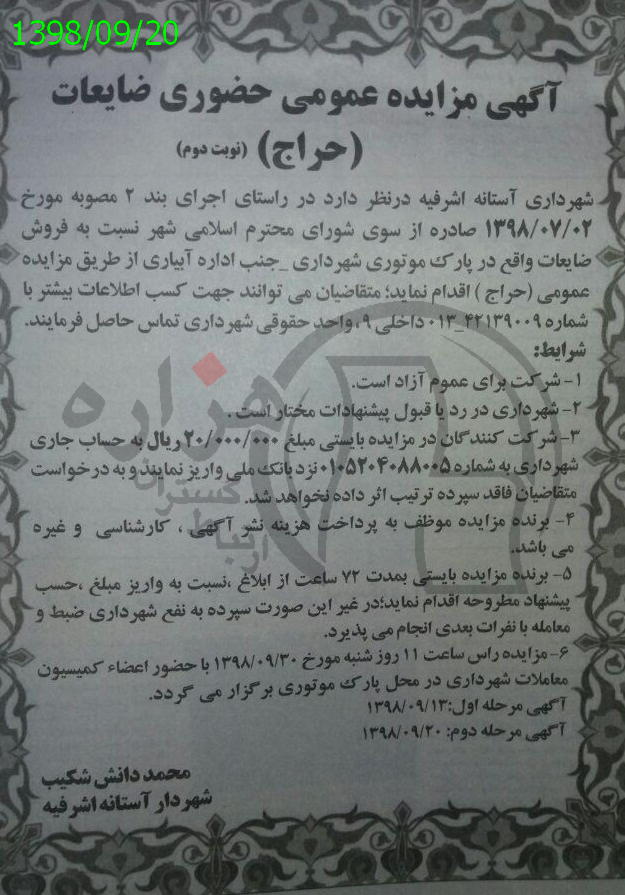 1398/09/20
آگهی مزایده عمومی حضوری ضایعات
(حراج) (نوبت دوم)
شهرداری آستانه اشرفیه درنظر دارد در راستای اجرای بند ۲ مصوبه مورخ
۱۳۹۸/۰۷/۰۲ صادره از سوی شورای محترم اسلامی شهر نسبت به فروش
ضایعات واقع در پارک موتوری شهرداری _جنب اداره آبیاری از طریق مزایده
عمومی (حراج ) اقدام نماید؛ متقاضیان می توانند جهت کسب اطلاعات بیشتر با
شماره ۴۲۱۳۹۰۰۹_۰۱۳ داخلی ۹، واحد حقوقی شهرداری تماس حاصل فرمایند.
شرایط:
۱- شرکت برای عموم آزاد است.
۲- شهرداری در رد یا قبول پیشنهادات مختار است .
۳- شرکت کنندگان در مزایده بایستی مبلغ ۲۰/۰۰۰/۰۰۰ ریال به حساب جاری
شهرداری به شماره ۰۱۰۵۲۰۴۰۸۸۰۰۵ نزد بانک ملی واریز نمایند و به درخواست
متقاضیان فاقد سپرده ترتیب اثر داده نخواهد شد.
۴- برنده مزایده موظف به پرداخت هزینه نشر آگهی ، کارشناسی و غیره
می باشد.
۵- برنده مزایده بایستی بمدت ۷۲ ساعت از ابلاغ ،نسبت به واریز مبلغ ،حسب
پیشنهاد مطروحه اقدام نماید؛در غیر این صورت سپرده به نفع شهرداری ضبط و
معامله با نفرات بعدی انجام می پذیرد.
۶- مزایده راس ساعت ۱۱ روز شنبه مورخ ۱۳۹۸/۰۹/۳۰ با حضور اعضاء کمیسیون
معاملات شهرداری در محل پارک موتوری برگزار می گردد.
آگهی مرحله اول:۱۳۹۸/۰۹/۱۳
آگهی مرحله دوم: ۱۳۹۸/۰۹/۲۰
محمد دانش شکیب
شهردار آستانه اشرفیه
هزاره
گستران
ارتباط